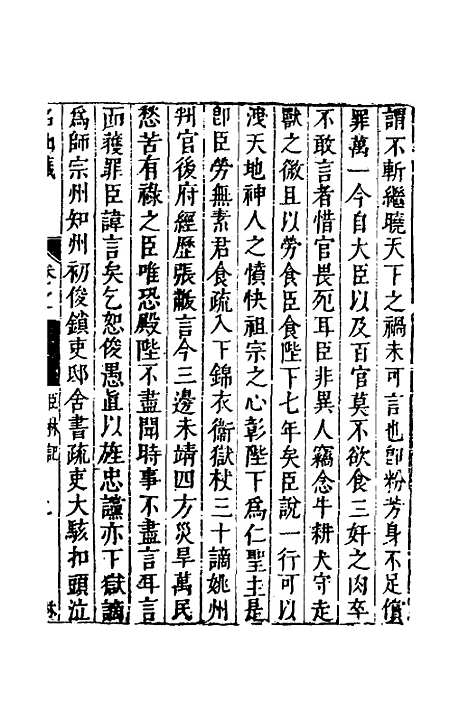 謂不斬繼曉天下之禍未可言也卽粉芳身不足償
罪萬一今自大臣以及百官莫不欲食三奸之肉卒
不敢言者惜官畏死耳臣非異人竊念牛耕犬守走
獸之微且以勞食臣食陛下七年矣臣說一行可以
洩天地神人之憤快祖宗之心彰陛下爲仁聖主是
卽臣勞無素君食疏入下錦衣衞獄杖三十謫姚州
判官後府經歷張黻言今三邊未靖四方災旱萬民
愁苦有祿之臣唯恐殿陛不盡聞時事不盡言耳言
而獲罪臣諱言矣乞恕俊愚直以旌忠讜亦下獄謫
爲師宗州知州初俊鎖吏邸舍書疏吏大駭扣頭泣
名山藏
臣林記